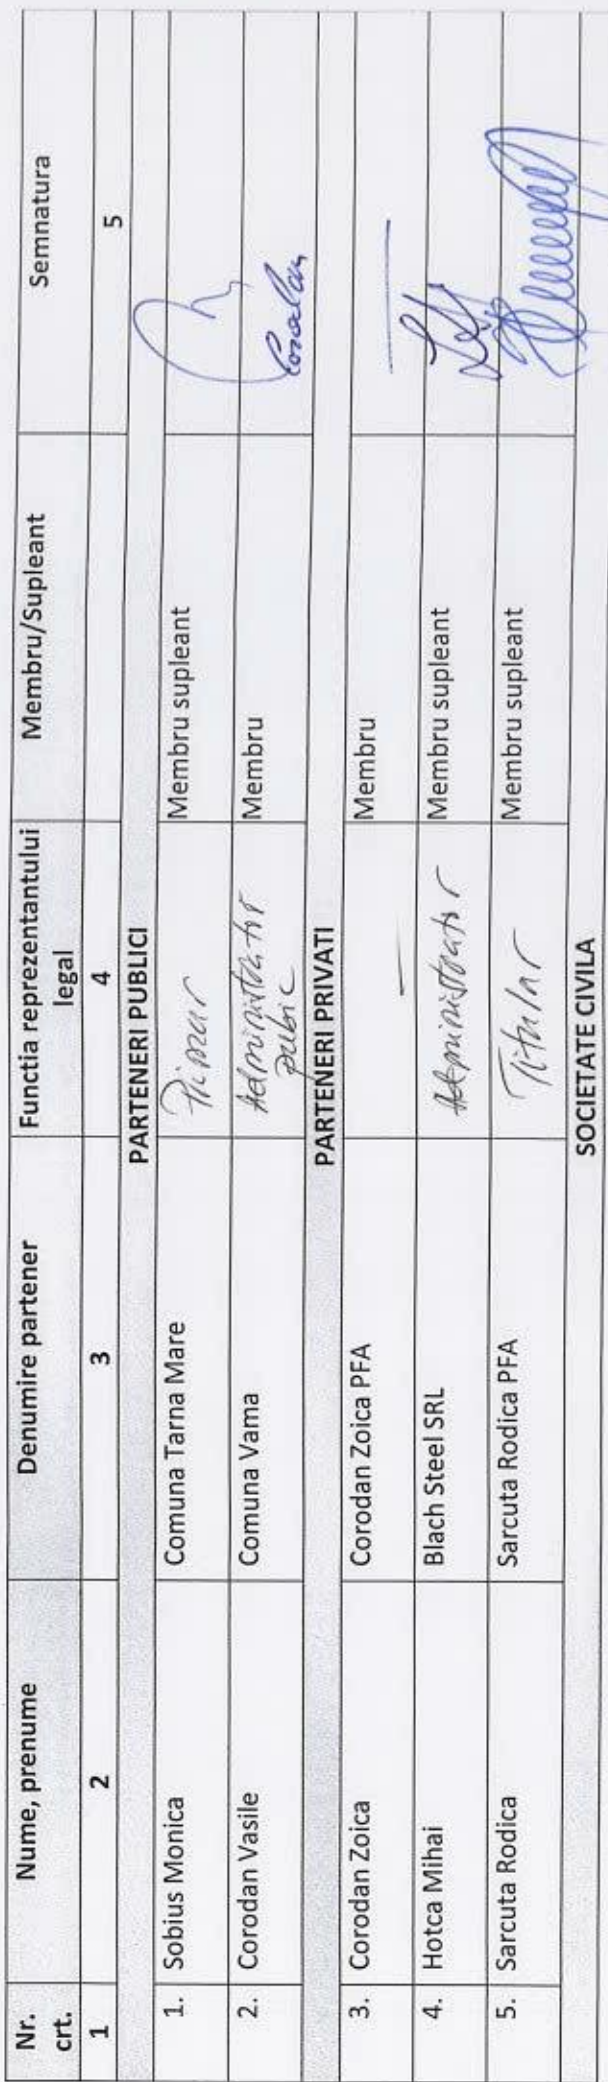 Nr. crt. Nume, prenume Denumire partener Functia reprezentantului legal Membru/Supleant Semnatura
1 2 3 4 5
PARTENERI PUBLICI
1. Sobius Monica Comuna Tarna Mare Primar Membru supleant
2. Corodan Vasile Comuna Vama Administrator public Membru Corodan
PARTENERI PRIVATI
3. Corodan Zoica Corodan Zoica PFA — Membru —
4. Hotca Mihai Blach Steel SRL Administrator Membru supleant
5. Sarcuta Rodica Sarcuta Rodica PFA Titular Membru supleant
SOCIETATE CIVILA